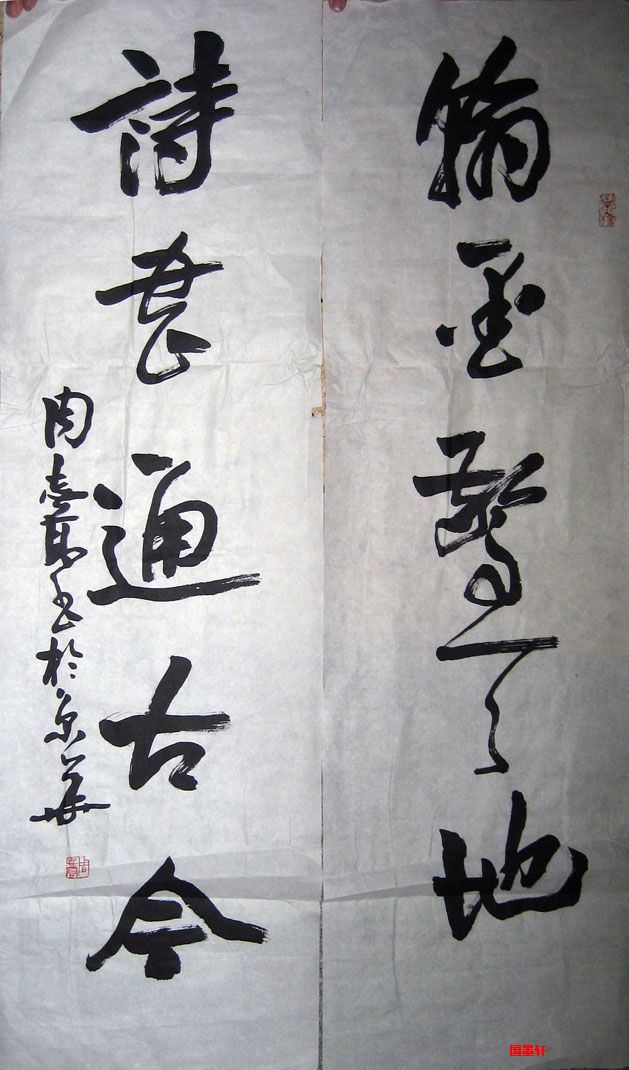 翰墨驚天地
詩書通古今
周書於京華
国墨轩